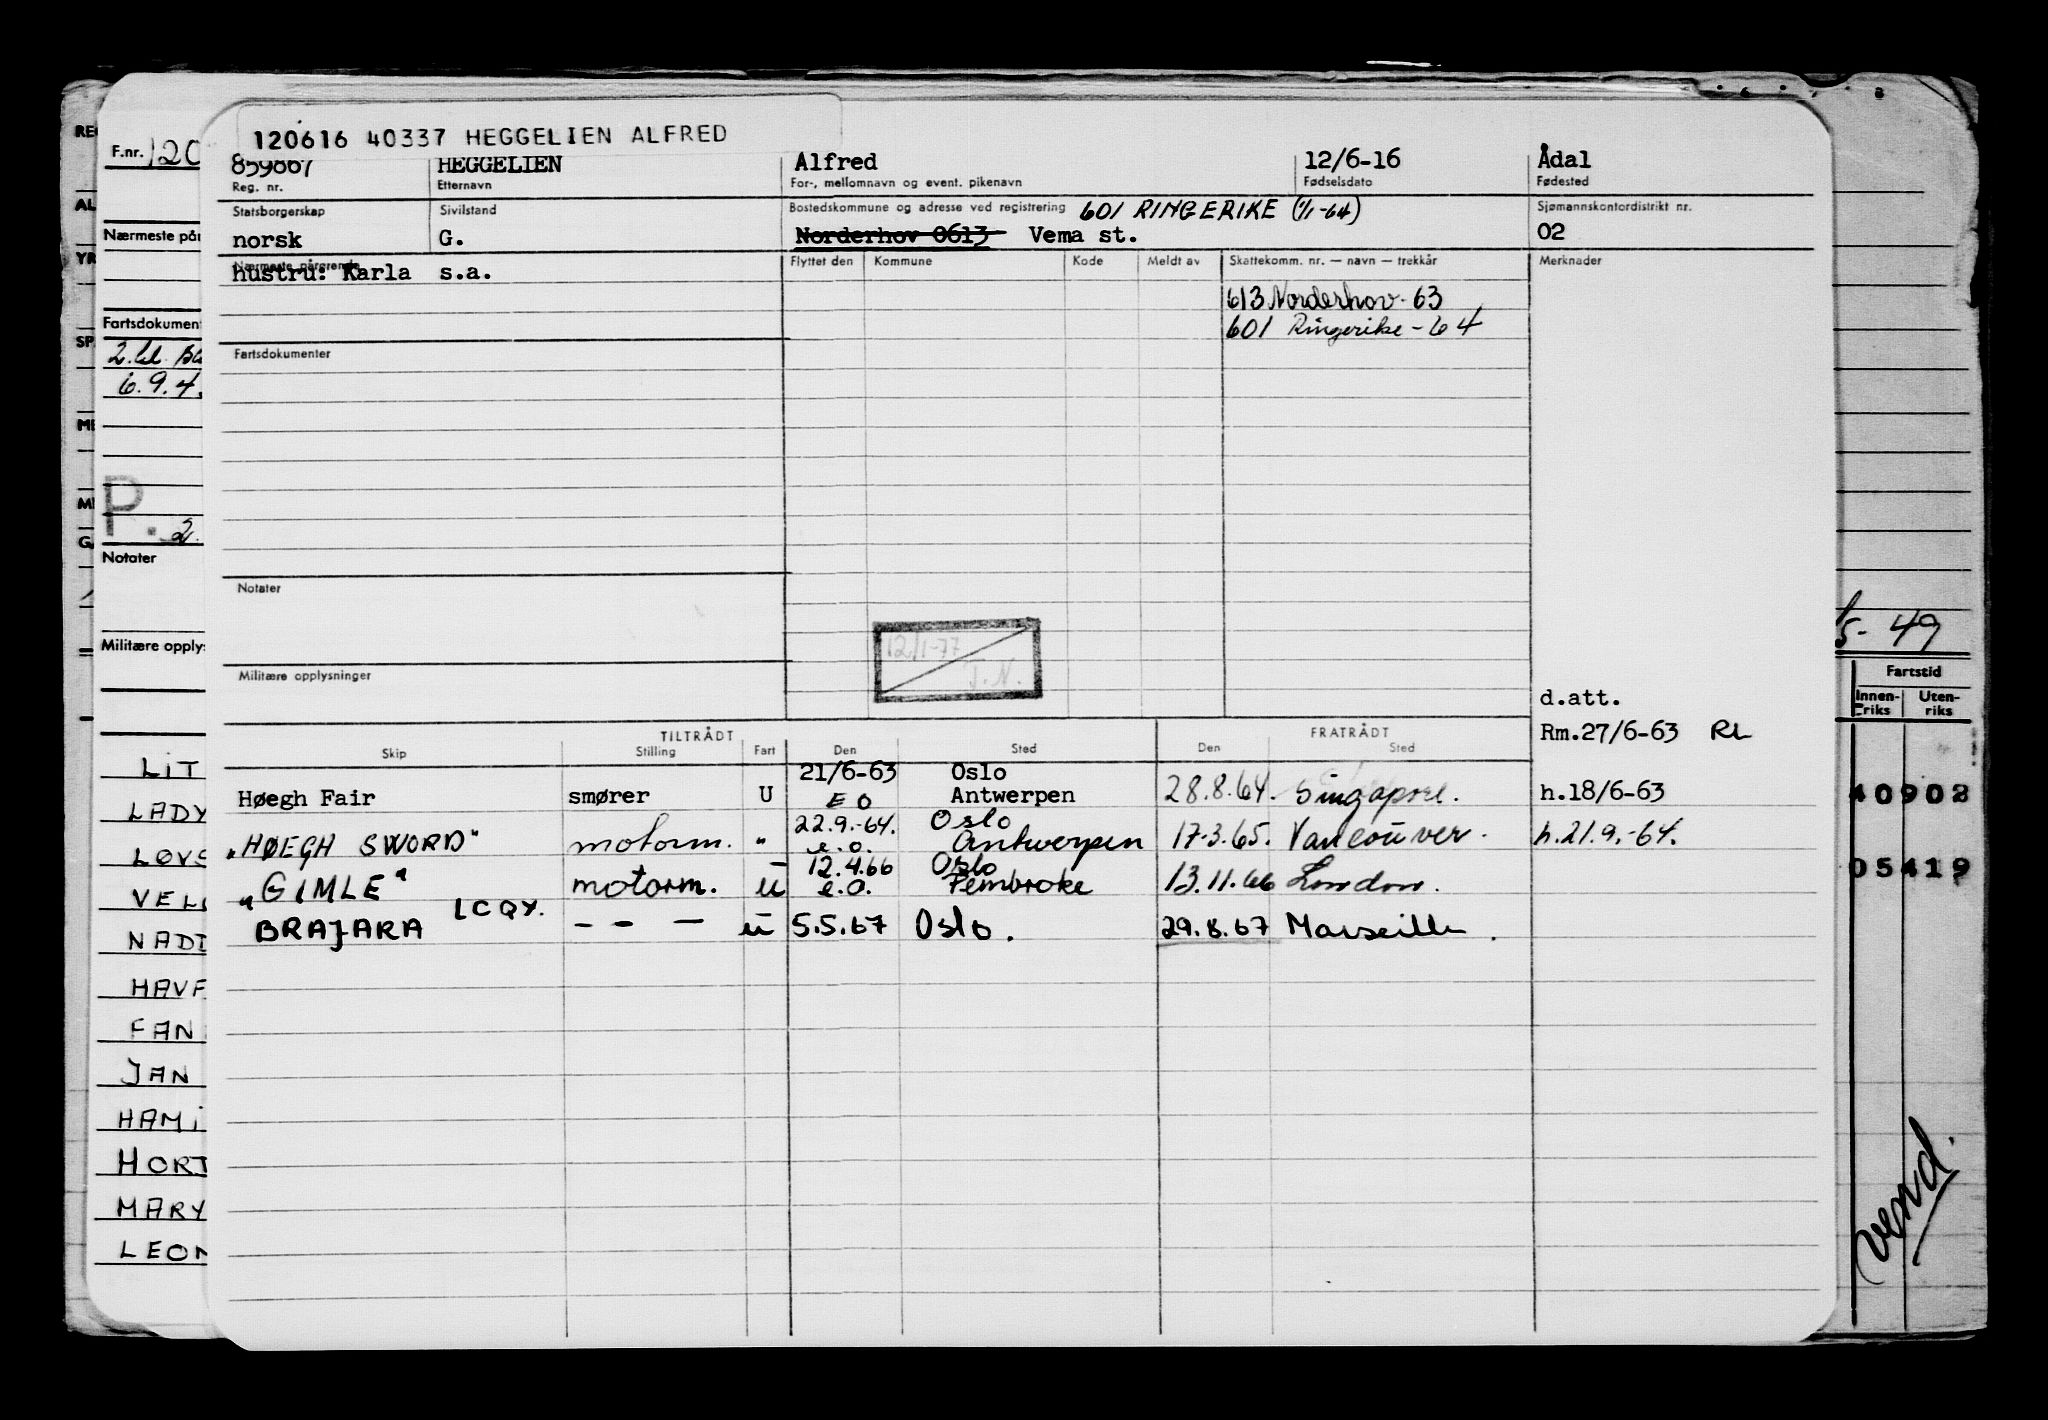 120616 40337 HEGGELIEN ALFRED
F.nr. 120
859867 HEGGELIEN Alfred 12/6-16 Ådal
Reg. nr. Etternavn For-, mellomnavn og event. pikenavn Fødselsdato Fødested
Statsborgerskap Sivilstand Bostedskommune og adresse ved registrering 601 RINGERIKE (1/1-64) Sjømannskontordistrikt nr.
norsk G. Norderhov 0613 Vema st. 02
Nærmeste pårørende Flyttet den Kommune Kode Meldt av Skattekomm. nr. — navn — trekkår Merknader
hustru: Karla s.a.
613 Norderhov - 63
601 Ringerike - 64
Fartsdokumenter
Notater
12/1-77
J.N.
Militære opplysninger
d.att.
Rm.27/6-63 RL
TILTRÅDT FRATRÅDT
Skip Stilling Fart Den Sted Den Sted
21/6-63 Oslo
Høegh Fair smører U EO Antwerpen 28.8.64. Singapore. h.18/6-63
22.9.-64. Oslo
"HØEGH SWORD" motorm. " e.o. Antwerpen 17.3.65. Vancouver. h.21.9.-64.
12.4.66 Oslo
"GIMLE" motorm. u e.o. Pembroke 13.11.66 London.
BRAJARA LCQY. - - - u 5.5.67 Oslo. 29.8.67 Marseille.
Nærmeste på
Fartsdokumen
2. kl.
6.9.4
P. 2.
Notater
Militære opplys
LIT
LADY
LØVS
VEL
NADD
HAVF
FAN
JAN
HAMI
HORT
MARY
LEON
REG
AL
YR
SP
5- 49
Fartstid
Innen-riks Uten-riks
40902
05419
vend.